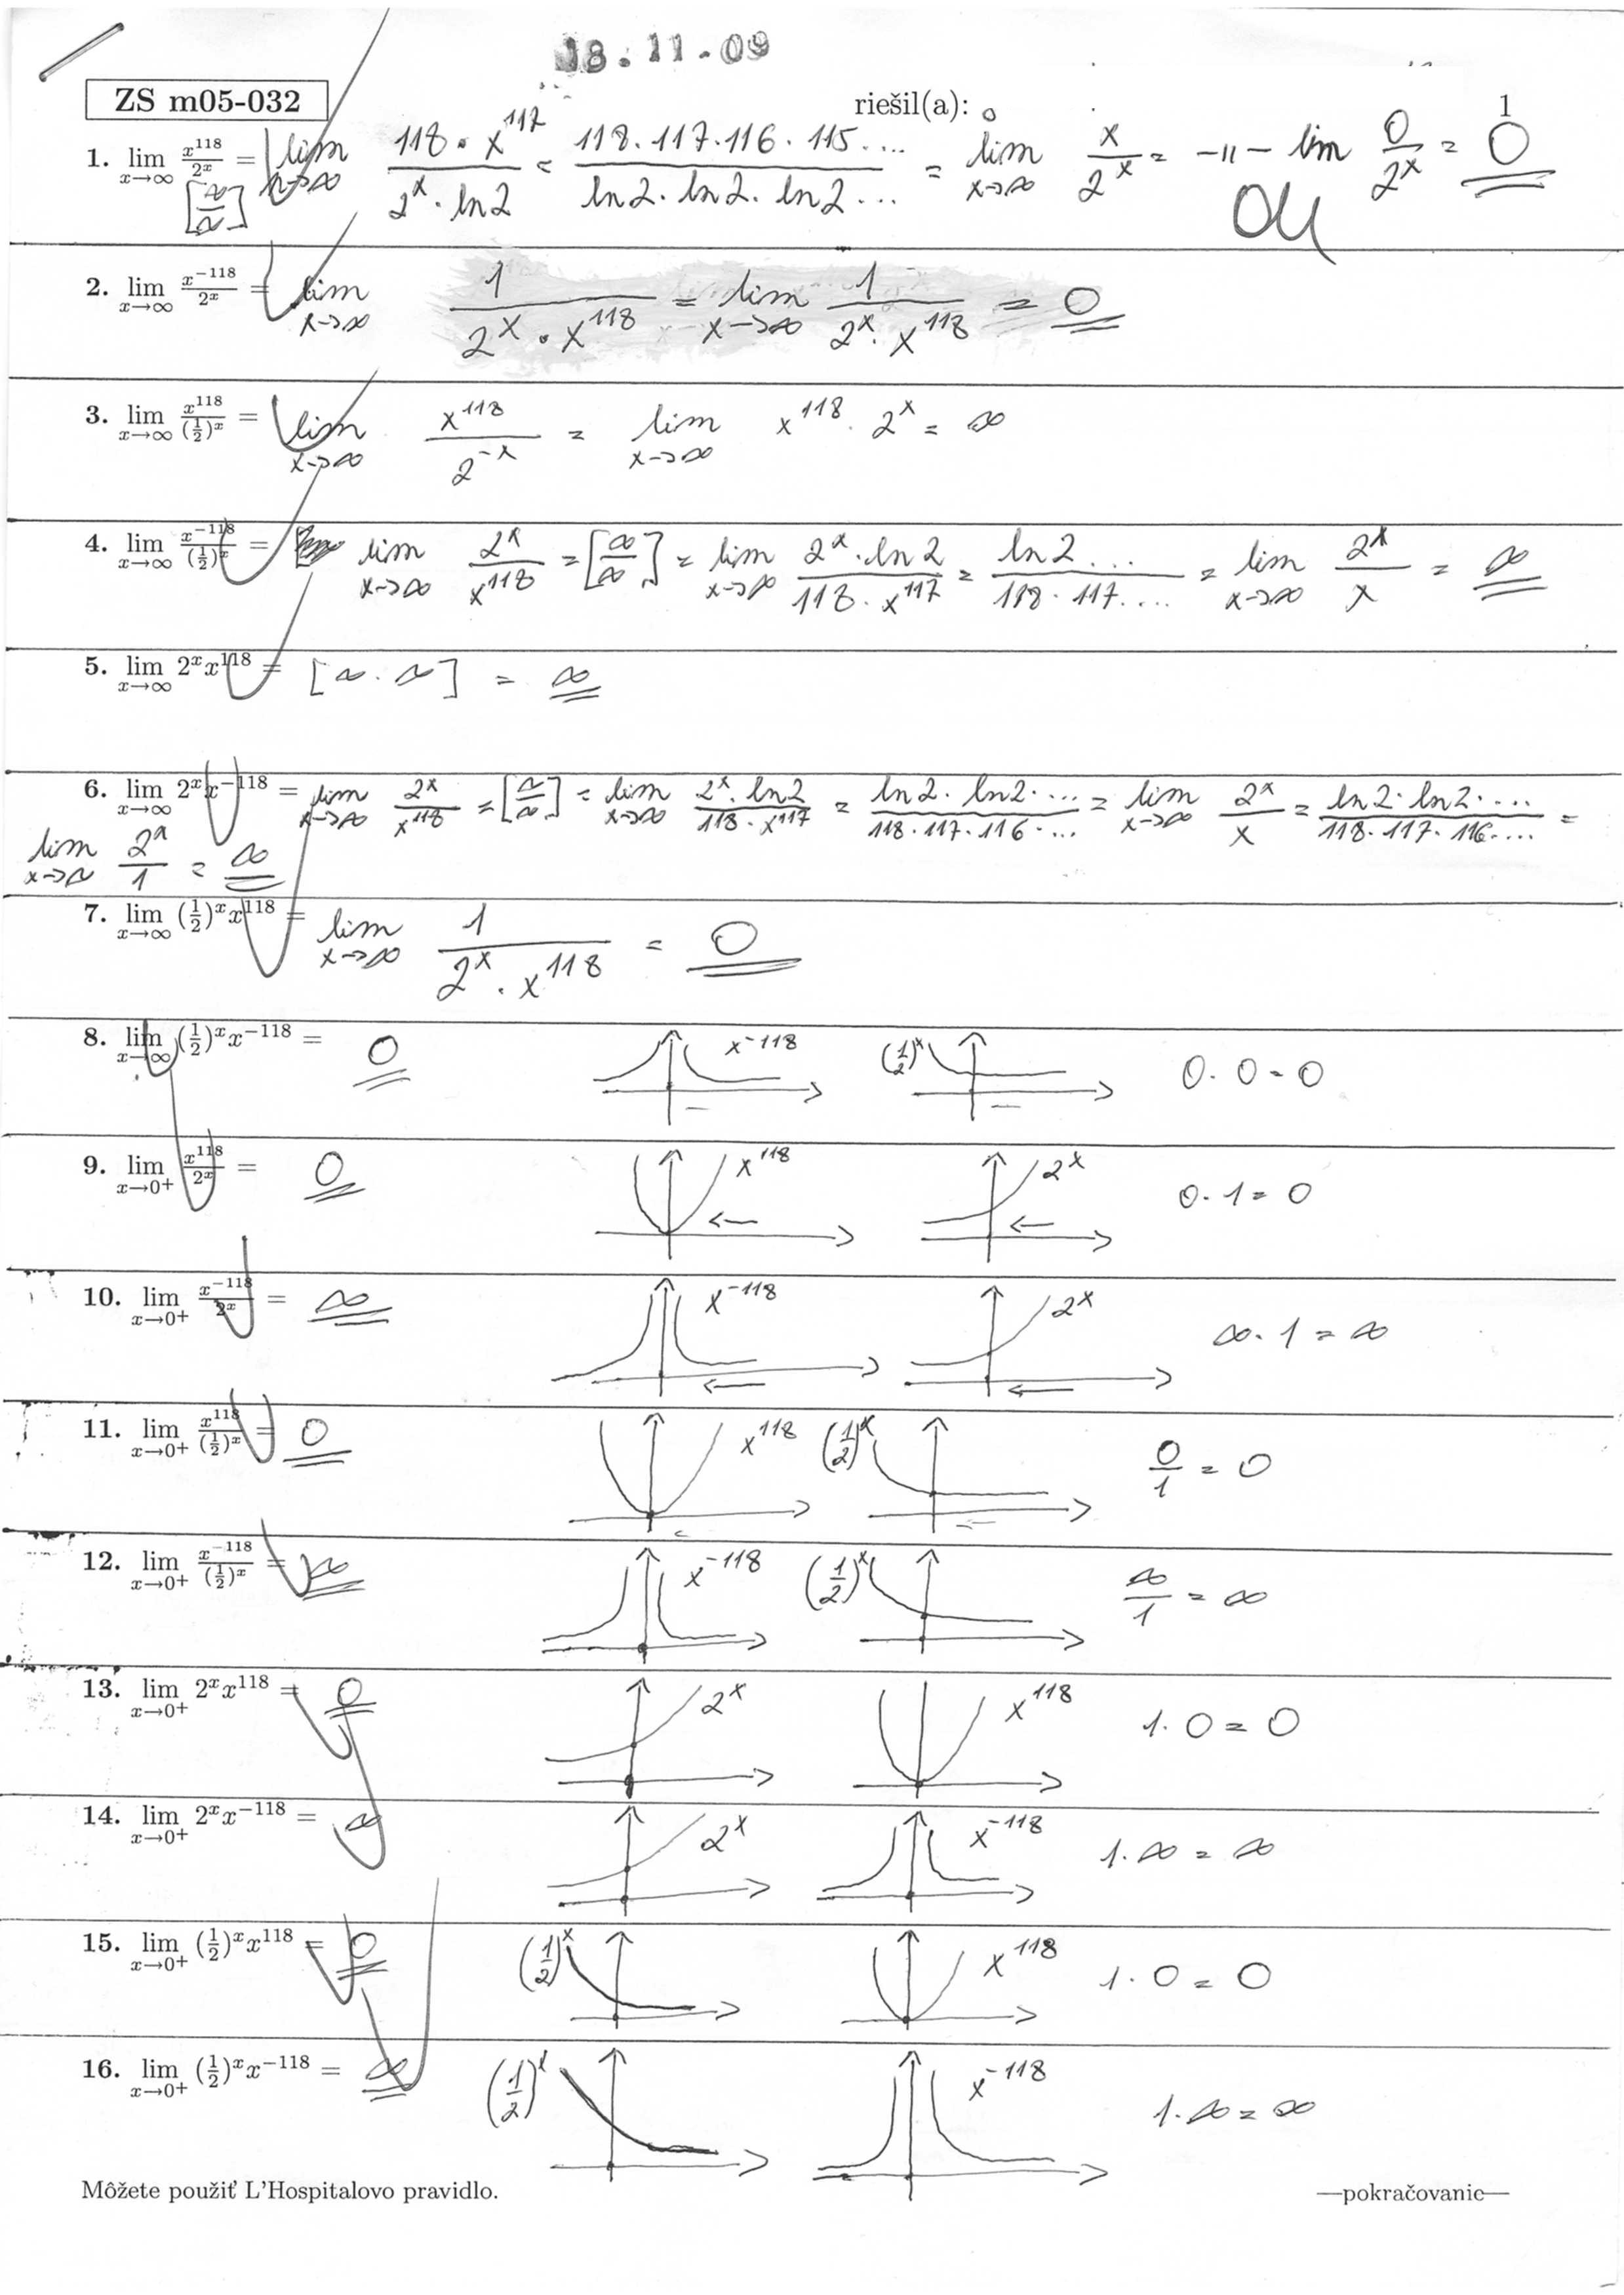 18.11.09
ZS m05-032 riešil(a): 1
1. lim x→∞ x^118/2^x = [∞/∞] lim x→∞ 118·x^117/2^x·ln2 = 118·117·116·115·.../ln2·ln2·ln2... = lim x→∞ x/2^x = -||- lim 0/2^x = 0
2. lim x→∞ x^−118/2^x = lim x→∞ 1/2^x·x^118 = lim x→∞ 1/2^x·x^118 = 0
3. lim x→∞ x^118/(1/2)^x = lim x→∞ x^118/2^-x = lim x→∞ x^118·2^x = ∞
4. lim x→∞ x^−118/(1/2)^x = lim x→∞ 2^x/x^118 = [∞/∞] = lim x→∞ 2^x·ln2/118·x^117 = ln2.../118·117.... = lim x→∞ 2^x/x = ∞
5. lim x→∞ 2^x x^118 = [∞·∞] = ∞
6. lim x→∞ 2^x x^−118 = lim x→∞ 2^x/x^118 = [∞/∞] = lim x→∞ 2^x·ln2/118·x^117 = ln2·ln2·.../118·117·116·... = lim x→∞ 2^x/x = ln2·ln2·.../118·117·116·... =
lim x→∞ 2^x/1 = ∞
7. lim x→∞ (1/2)^x x^118 = lim x→∞ 1/2^x·x^118 = 0
8. lim x→∞ (1/2)^x x^−118 = 0 x^-118 (1/2)^x 0·0=0
9. lim x→0+ x^118/2^x = 0 x^118 2^x 0·1=0
10. lim x→0+ x^−118/2^x = ∞ x^-118 2^x ∞·1=∞
11. lim x→0+ x^118/(1/2)^x = 0 x^118 (1/2)^x 0/1=0
12. lim x→0+ x^−118/(1/2)^x = ∞ x^-118 (1/2)^x ∞/1=∞
13. lim x→0+ 2^x x^118 = 0 2^x x^118 1·0=0
14. lim x→0+ 2^x x^−118 = ∞ 2^x x^-118 1·∞=∞
15. lim x→0+ (1/2)^x x^118 = 0 (1/2)^x x^118 1·0=0
16. lim x→0+ (1/2)^x x^−118 = ∞ (1/2)^x x^-118 1·∞=∞
Môžete použiť L'Hospitalovo pravidlo. —pokračovanie—